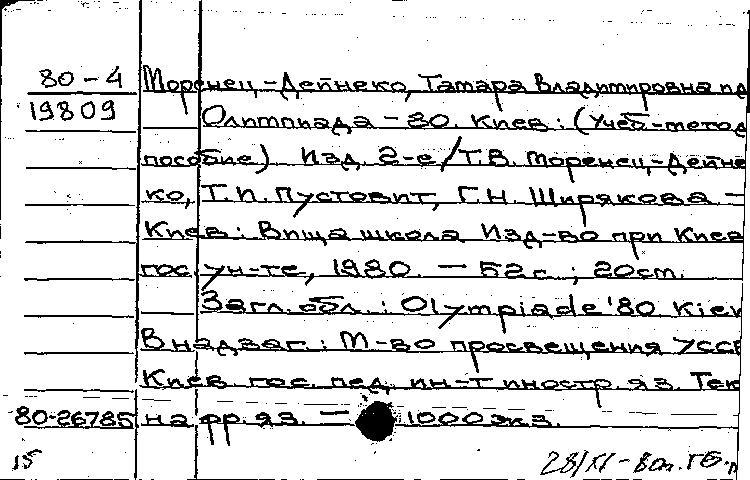 80-4 Моренец-Дейнеко, Тамара Владимировна и д
19809 Олимпиада - 80. Киев : (Учеб.-метод.
пособие) Изд. 2-е / Т.В. Моренец-Дейне-
ко, Т.П. Пустовит, Г.Н. Ширякова -
Киев : Вища школа Изд-во при Киев.
гос. ун-те, 1980. - 52 с. ; 20 см.
Загл. обл. : Olympiade '80 Kiev
В надзаг. : М-во просвещения УССР
Киев гос. пед. ин-т иностр. яз. Тек
80-26785 на фр. яз. - 1000 экз.
15 28/XI-80г.